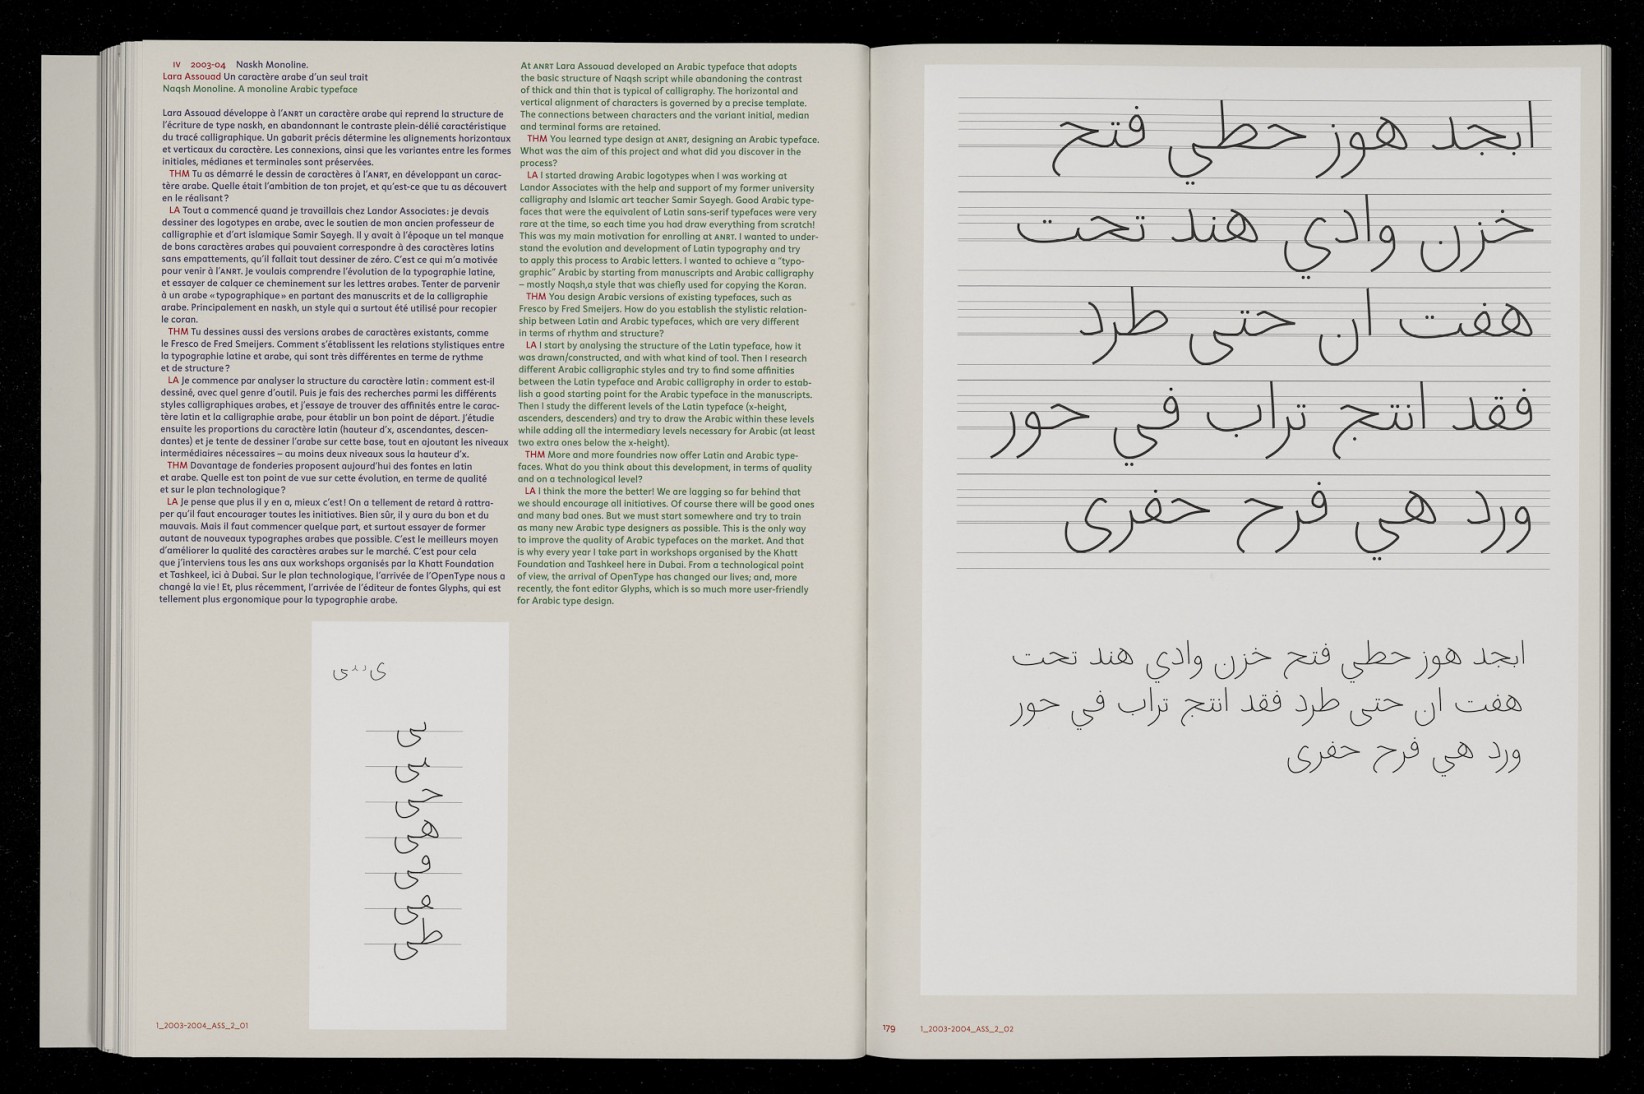 IV 2003-04 Naskh Monoline.
Lara Assouad Un caractère arabe d'un seul trait
Naqsh Monoline. A monoline Arabic typeface
Lara Assouad développe à l'ANRT un caractère arabe qui reprend la structure de
l'écriture de type naskh, en abandonnant le contraste plein-délié caractéristique
du tracé calligraphique. Un gabarit précis détermine les alignements horizontaux
et verticaux du caractère. Les connexions, ainsi que les variantes entre les formes
initiales, médianes et terminales sont préservées.
THM Tu as démarré le dessin de caractères à l'ANRT, en développant un carac-
tère arabe. Quelle était l'ambition de ton projet, et qu'est-ce que tu as découvert
en le réalisant ?
LA Tout a commencé quand je travaillais chez Landor Associates : je devais
dessiner des logotypes en arabe, avec le soutien de mon ancien professeur de
calligraphie et d'art islamique Samir Sayegh. Il y avait à l'époque un tel manque
de bons caractères arabes qui pouvaient correspondre à des caractères latins
sans empattements, qu'il fallait tout dessiner de zéro. C'est ce qui m'a motivée
pour venir à l'ANRT. Je voulais comprendre l'évolution de la typographie latine,
et essayer de calquer ce cheminement sur les lettres arabes. Tenter de parvenir
à un arabe « typographique » en partant des manuscrits et de la calligraphie
arabe. Principalement en naskh, un style qui a surtout été utilisé pour recopier
le coran.
THM Tu dessines aussi des versions arabes de caractères existants, comme
le Fresco de Fred Smeijers. Comment s'établissent les relations stylistiques entre
la typographie latine et arabe, qui sont très différentes en terme de rythme
et de structure ?
LA Je commence par analyser la structure du caractère latin : comment est-il
dessiné, avec quel genre d'outil. Puis je fais des recherches parmi les différents
styles calligraphiques arabes, et j'essaye de trouver des affinités entre le carac-
tère latin et la calligraphie arabe, pour établir un bon point de départ. J'étudie
ensuite les proportions du caractère latin (hauteur d'x, ascendantes, descen-
dantes) et je tente de dessiner l'arabe sur cette base, tout en ajoutant les niveaux
intermédiaires nécessaires – au moins deux niveaux sous la hauteur d'x.
THM Davantage de fonderies proposent aujourd'hui des fontes en latin
et arabe. Quelle est ton point de vue sur cette évolution, en terme de qualité
et sur le plan technologique ?
LA Je pense que plus il y en a, mieux c'est ! On a tellement de retard à rattra-
per qu'il faut encourager toutes les initiatives. Bien sûr, il y aura du bon et du
mauvais. Mais il faut commencer quelque part, et surtout essayer de former
autant de nouveaux typographes arabes que possible. C'est le meilleurs moyen
d'améliorer la qualité des caractères arabes sur le marché. C'est pour cela
que j'interviens tous les ans aux workshops organisés par la Khatt Foundation
et Tashkeel, ici à Dubai. Sur le plan technologique, l'arrivée de l'OpenType nous a
changé la vie ! Et, plus récemment, l'arrivée de l'éditeur de fontes Glyphs, qui est
tellement plus ergonomique pour la typographie arabe.
At ANRT Lara Assouad developed an Arabic typeface that adopts
the basic structure of Naqsh script while abandoning the contrast
of thick and thin that is typical of calligraphy. The horizontal and
vertical alignment of characters is governed by a precise template.
The connections between characters and the variant initial, median
and terminal forms are retained.
THM You learned type design at ANRT, designing an Arabic typeface.
What was the aim of this project and what did you discover in the
process?
LA I started drawing Arabic logotypes when I was working at
Landor Associates with the help and support of my former university
calligraphy and Islamic art teacher Samir Sayegh. Good Arabic type-
faces that were the equivalent of Latin sans-serif typefaces were very
rare at the time, so each time you had draw everything from scratch!
This was my main motivation for enrolling at ANRT. I wanted to under-
stand the evolution and development of Latin typography and try
to apply this process to Arabic letters. I wanted to achieve a "typo-
graphic" Arabic by starting from manuscripts and Arabic calligraphy
– mostly Naqsh,a style that was chiefly used for copying the Koran.
THM You design Arabic versions of existing typefaces, such as
Fresco by Fred Smeijers. How do you establish the stylistic relation-
ship between Latin and Arabic typefaces, which are very different
in terms of rhythm and structure?
LA I start by analysing the structure of the Latin typeface, how it
was drawn/constructed, and with what kind of tool. Then I research
different Arabic calligraphic styles and try to find some affinities
between the Latin typeface and Arabic calligraphy in order to estab-
lish a good starting point for the Arabic typeface in the manuscripts.
Then I study the different levels of the Latin typeface (x-height,
ascenders, descenders) and try to draw the Arabic within these levels
while adding all the intermediary levels necessary for Arabic (at least
two extra ones below the x-height).
THM More and more foundries now offer Latin and Arabic type-
faces. What do you think about this development, in terms of quality
and on a technological level?
LA I think the more the better! We are lagging so far behind that
we should encourage all initiatives. Of course there will be good ones
and many bad ones. But we must start somewhere and try to train
as many new Arabic type designers as possible. This is the only way
to improve the quality of Arabic typefaces on the market. And that
is why every year I take part in workshops organised by the Khatt
Foundation and Tashkeel here in Dubai. From a technological point
of view, the arrival of OpenType has changed our lives; and, more
recently, the font editor Glyphs, which is so much more user-friendly
for Arabic type design.
حى
هى
فى
مى
طى
1_2003-2004_ASS_2_01
ابجد هوز حطي فتح
خزن وادي هند تحت
هفت ان حتى طرد
فقد انتج تراب في حور
ورد هي فرح حفرى
ابجد هوز حطي فتح خزن وادي هند تحت
هفت ان حتى طرد فقد انتج تراب في حور
ورد هي فرح حفرى
179 1_2003-2004_ASS_2_02